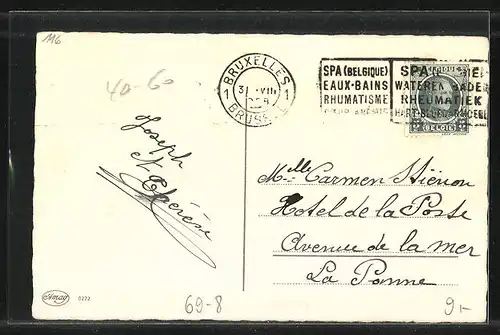 116
40-60
BRUXELLES
1 1
BRUSSEL
SPA (BELGIQUE)
EAUX-BAINS
RHUMATISME
SPA
WATEREN BADEN
RHEUMATIEK
BELGIE
Joseph
et Thérèse
Melle Carmen Stiénon
Hotel de la Poste
Avenue de la mer
La Panne
Amag 0272
69-8
9.-